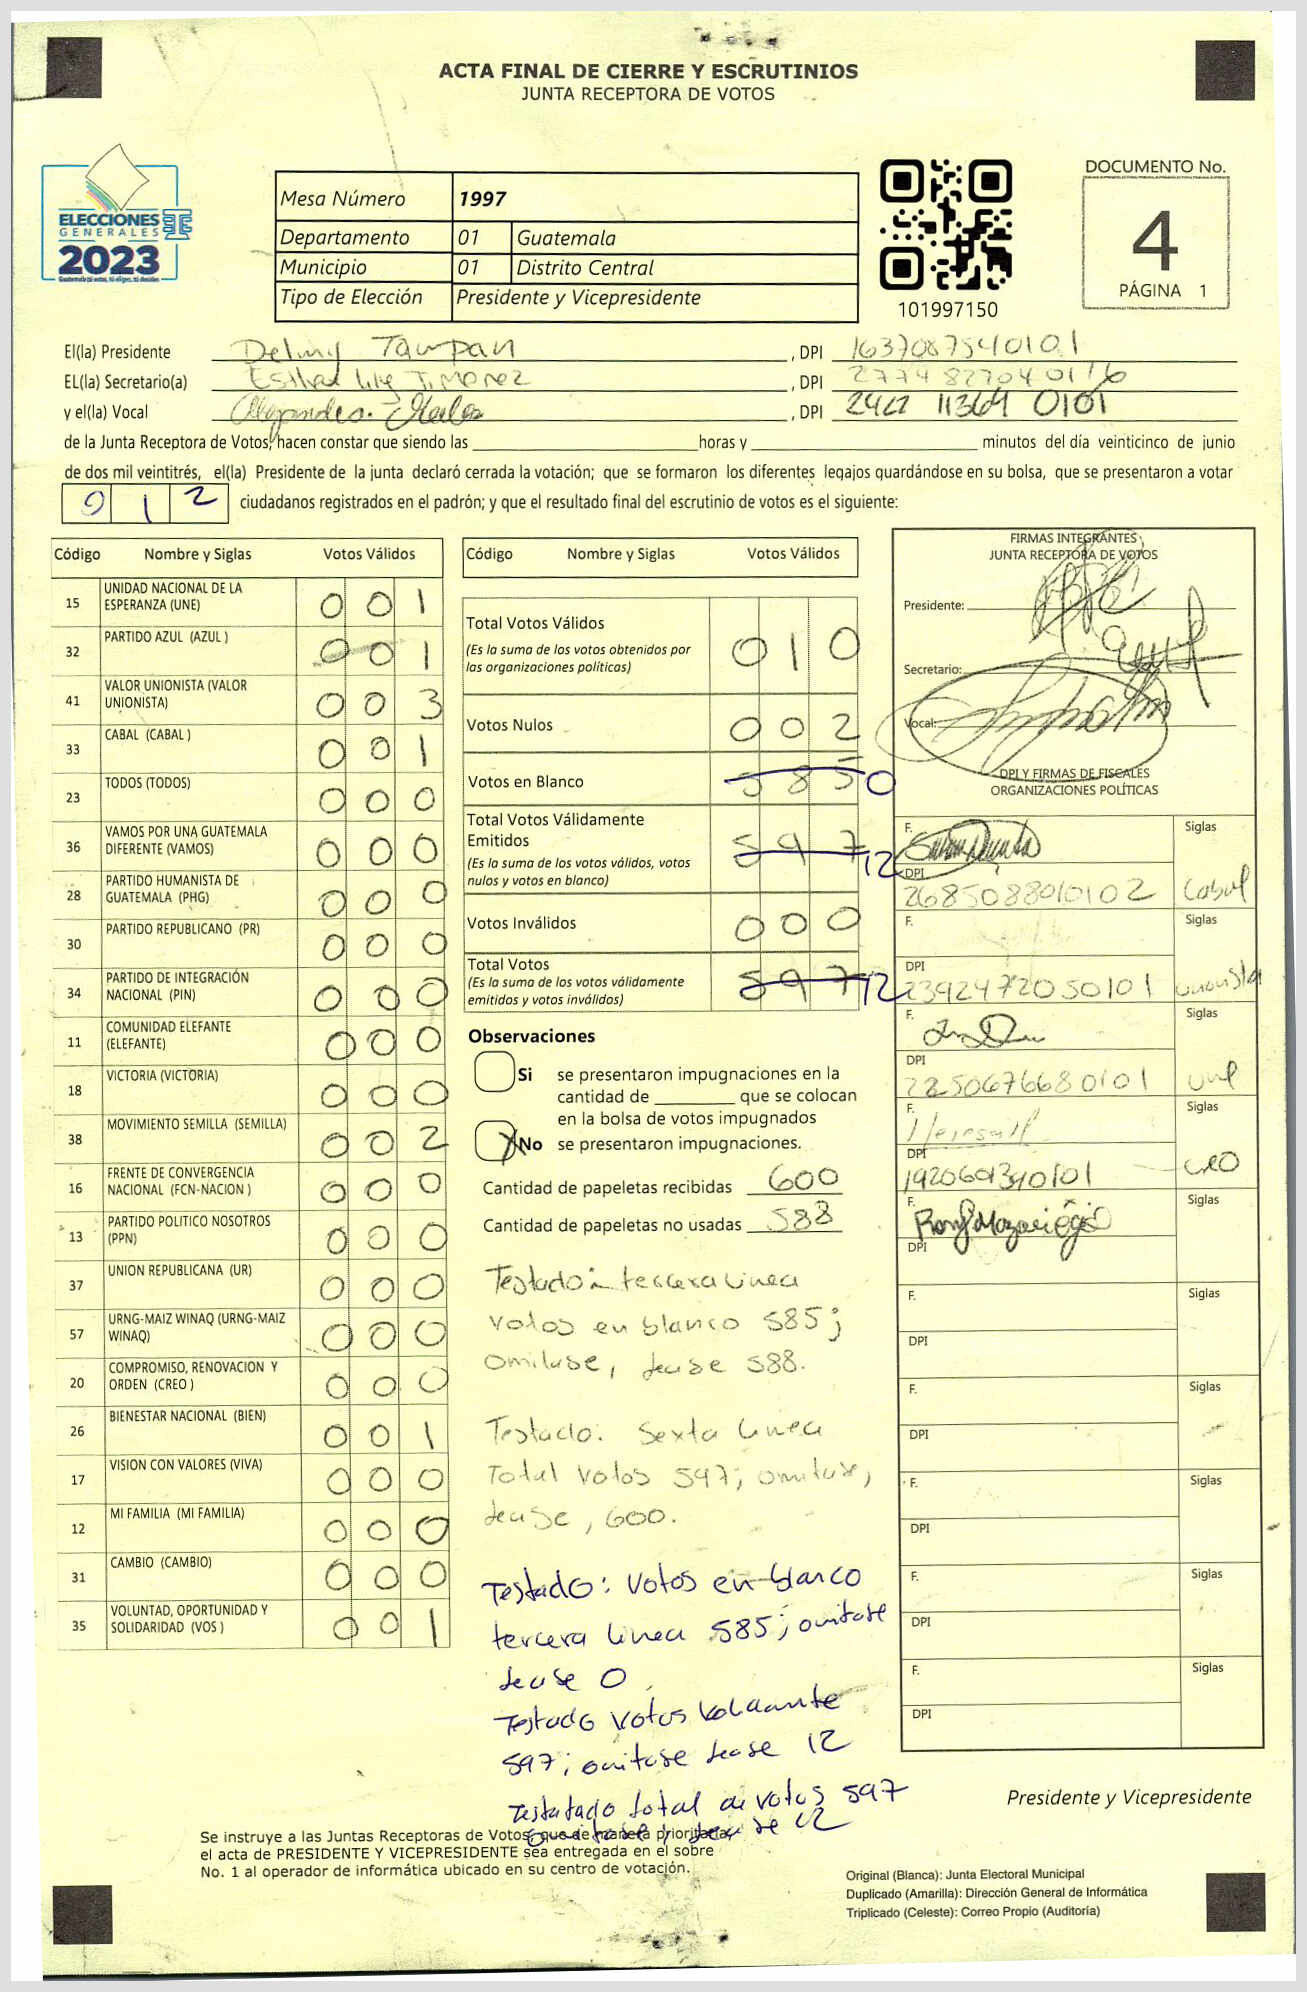 ACTA FINAL DE CIERRE Y ESCRUTINIOS
JUNTA RECEPTORA DE VOTOS
ELECCIONES
GENERALES
2023
Mesa Número 1997
Departamento 01 Guatemala
Municipio 01 Distrito Central
Tipo de Elección Presidente y Vicepresidente
101997150
DOCUMENTO No.
4
PÁGINA 1
El(la) Presidente Delmy Tampan , DPI 1637087540101
EL(la) Secretario(a) , DPI 2774827040116
y el(la) Vocal , DPI 0101
de la Junta Receptora de Votos, hacen constar que siendo las horas y minutos del día veinticinco de junio
de dos mil veintitrés, el(la) Presidente de la junta declaró cerrada la votación; que se formaron los diferentes legajos quardándose en su bolsa, que se presentaron a votar
012 ciudadanos registrados en el padrón; y que el resultado final del escrutinio de votos es el siguiente:
Código Nombre y Siglas Votos Válidos
15 UNIDAD NACIONAL DE LA
ESPERANZA (UNE) 001
32 PARTIDO AZUL (AZUL ) 001
41 VALOR UNIONISTA (VALOR
UNIONISTA) 003
33 CABAL (CABAL ) 001
23 TODOS (TODOS) 000
36 VAMOS POR UNA GUATEMALA
DIFERENTE (VAMOS) 000
28 PARTIDO HUMANISTA DE
GUATEMALA (PHG) 000
30 PARTIDO REPUBLICANO (PR) 000
34 PARTIDO DE INTEGRACIÓN
NACIONAL (PIN) 000
11 COMUNIDAD ELEFANTE
(ELEFANTE) 000
18 VICTORIA (VICTORIA) 000
38 MOVIMIENTO SEMILLA (SEMILLA) 002
16 FRENTE DE CONVERGENCIA
NACIONAL (FCN-NACION ) 000
13 PARTIDO POLITICO NOSOTROS
(PPN) 000
37 UNION REPUBLICANA (UR) 000
57 URNG-MAIZ WINAQ (URNG-MAIZ
WINAQ) 000
20 COMPROMISO, RENOVACION Y
ORDEN (CREO ) 000
26 BIENESTAR NACIONAL (BIEN) 001
17 VISION CON VALORES (VIVA) 000
12 MI FAMILIA (MI FAMILIA) 000
31 CAMBIO (CAMBIO) 000
35 VOLUNTAD, OPORTUNIDAD Y
SOLIDARIDAD (VOS ) 001
Código Nombre y Siglas Votos Válidos
Total Votos Válidos
(Es la suma de los votos obtenidos por
las organizaciones políticas) 010
Votos Nulos 002
Votos en Blanco 585 0
Total Votos Válidamente
Emitidos 597 12
(Es la suma de los votos válidos, votos
nulos y votos en blanco)
Votos Inválidos 000
Total Votos
(Es la suma de los votos válidamente
emitidos y votos inválidos) 597 12
Observaciones
Si se presentaron impugnaciones en la
cantidad de que se colocan
en la bolsa de votos impugnados
X No se presentaron impugnaciones.
Cantidad de papeletas recibidas 600
Cantidad de papeletas no usadas 588
Testado: tercera Linea
votos en blanco 585;
omitase, lease 588.
Testado: Sexta Linea
Total votos 597; omitase,
lease, 600.
Testado: Votos en blanco
tercera linea 585; omitase
lease 0
Testado Votos
597; omitase lease 12
total de votos 597
omitase lease 12
FIRMAS INTEGRANTES
JUNTA RECEPTORA DE VOTOS
Presidente:
Secretario:
Vocal:
DPI Y FIRMAS DE FISCALES
ORGANIZACIONES POLÍTICAS
F. Siglas
DPI
2685088010102 Cabal
F. Siglas
DPI
2392472050101 unionista
F. Siglas
DPI
2250676680101 une
F. Siglas
DPI
1920601390101 creo
F. Siglas
DPI
F. Siglas
DPI
F. Siglas
DPI
F. Siglas
DPI
F. Siglas
DPI
F. Siglas
DPI
Presidente y Vicepresidente
Se instruye a las Juntas Receptoras de Votos, que de manera prioritaria,
el acta de PRESIDENTE Y VICEPRESIDENTE sea entregada en el sobre
No. 1 al operador de informática ubicado en su centro de votación.
Original (Blanca): Junta Electoral Municipal
Duplicado (Amarilla): Dirección General de Informática
Triplicado (Celeste): Correo Propio (Auditoría)